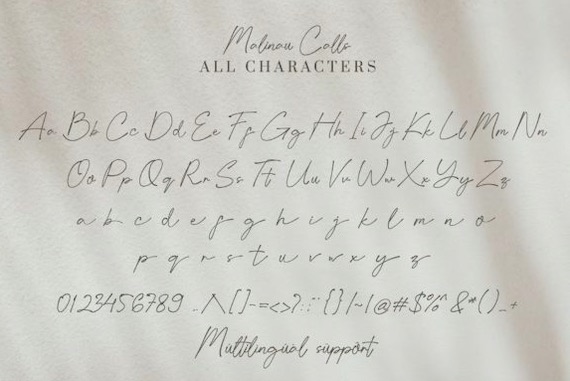 Malinau Calls
ALL CHARACTERS
Aa Bb Cc Dd Ee Ff Gg Hh Ii Jj Kk Ll Mm Nn
Oo Pp Qq Rr Ss Tt Uu Vv Ww Xx Yy Zz
a b c d e f g h i j k l m n o
p q r s t u v w x y z
0123456789
Multilingual support